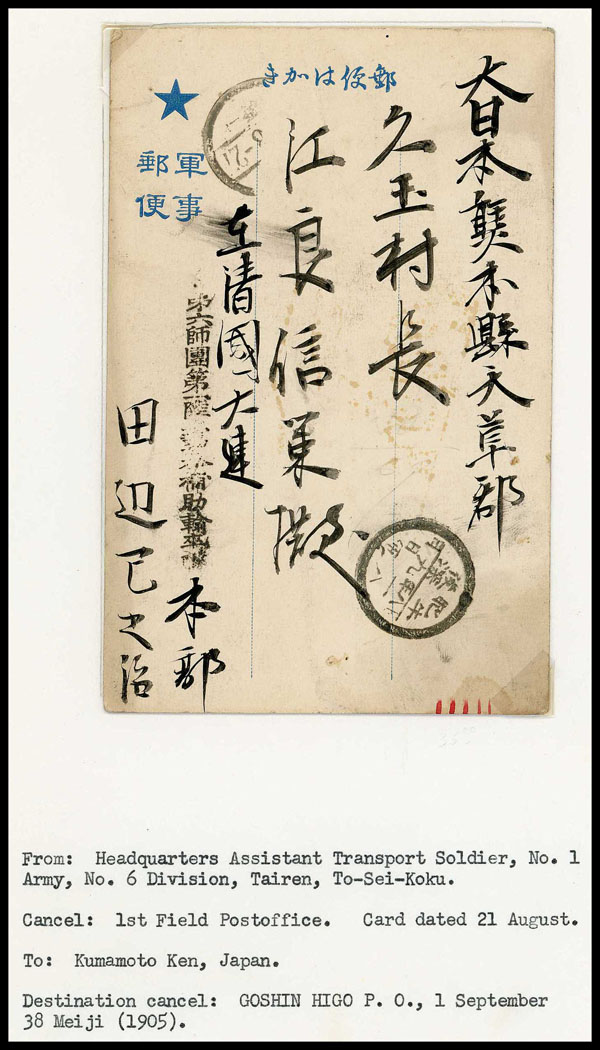 郵便はがき
軍事
郵便
大日本熊本縣天草郡
久玉村長
江良信策殿
在清國大連
第六師團第一陸
補助輸卒隊
本部
田辺巳之治
From: Headquarters Assistant Transport Soldier, No. 1
Army, No. 6 Division, Tairen, To-Sei-Koku.
Cancel: 1st Field Postoffice. Card dated 21 August.
To: Kumamoto Ken, Japan.
Destination cancel: GOSHIN HIGO P. O., 1 September
38 Meiji (1905).